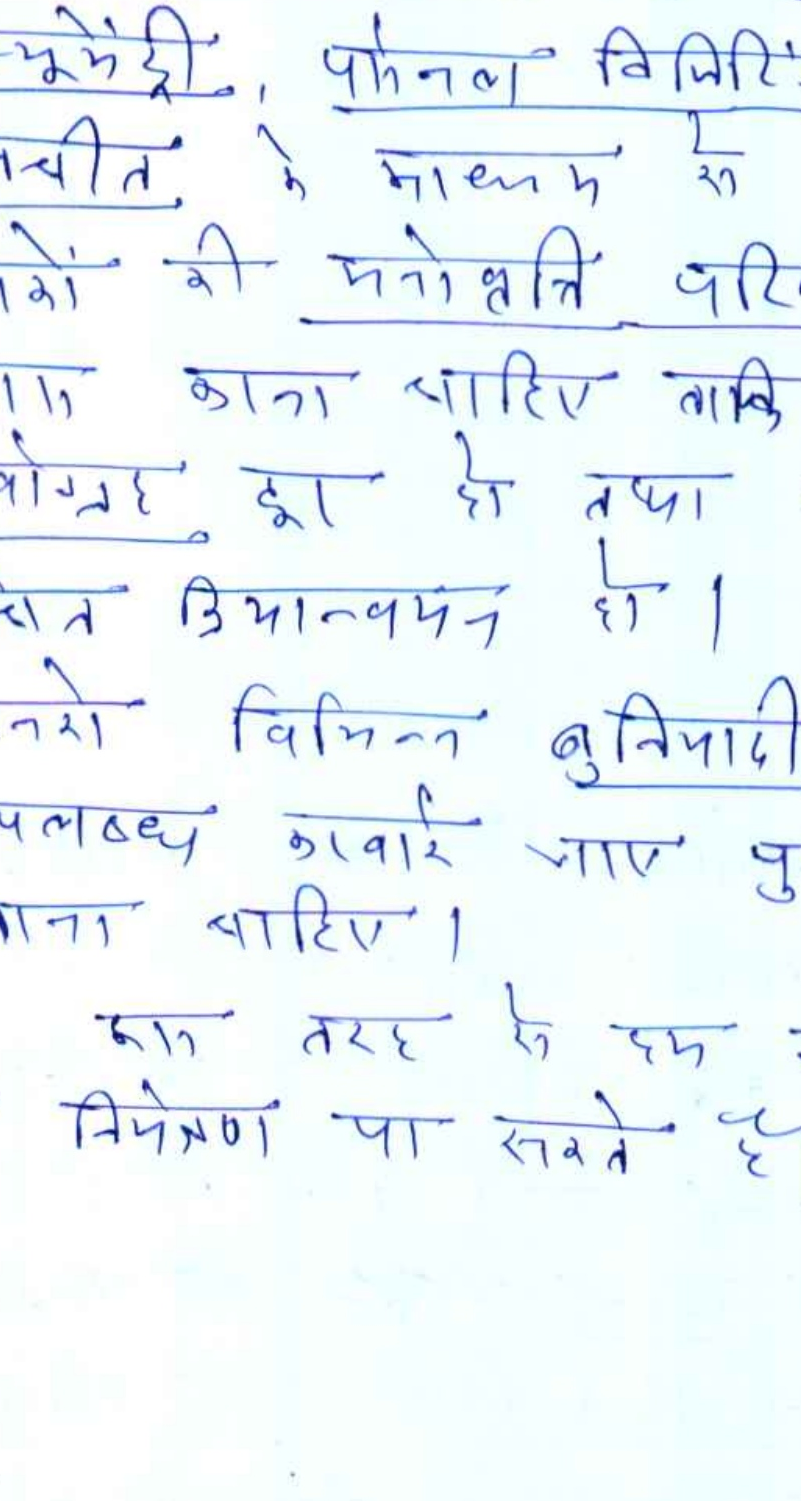 ्यूमेंट्री, पर्सनल विजिटिं
तचीत के माध्यम से
रों की मनोवृत्ति परि
ास करना चाहिए ताकि
र्वाग्रह दूर हो तथा
चित क्रियान्वयन हो ।
नको विभिन्न बुनियादी
पलब्ध करवाई जाए पु
ाना चाहिए ।
इस तरह से हम
नियंत्रण पा सकते है